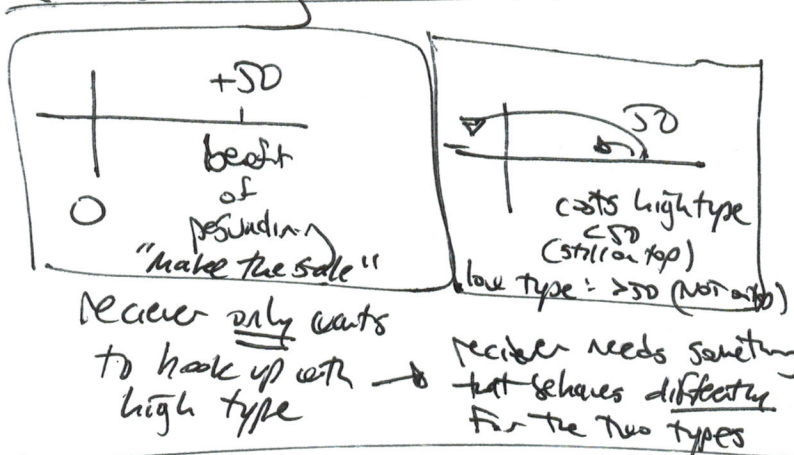 +50
O
beaft
of
pesuading
"make the sale"
50
costs high type
<50
(still on top)
low type: >50 (NOT on top)
reciever only wants
to hook up with →
high type
reciever needs something
that behaves differently
for the two types